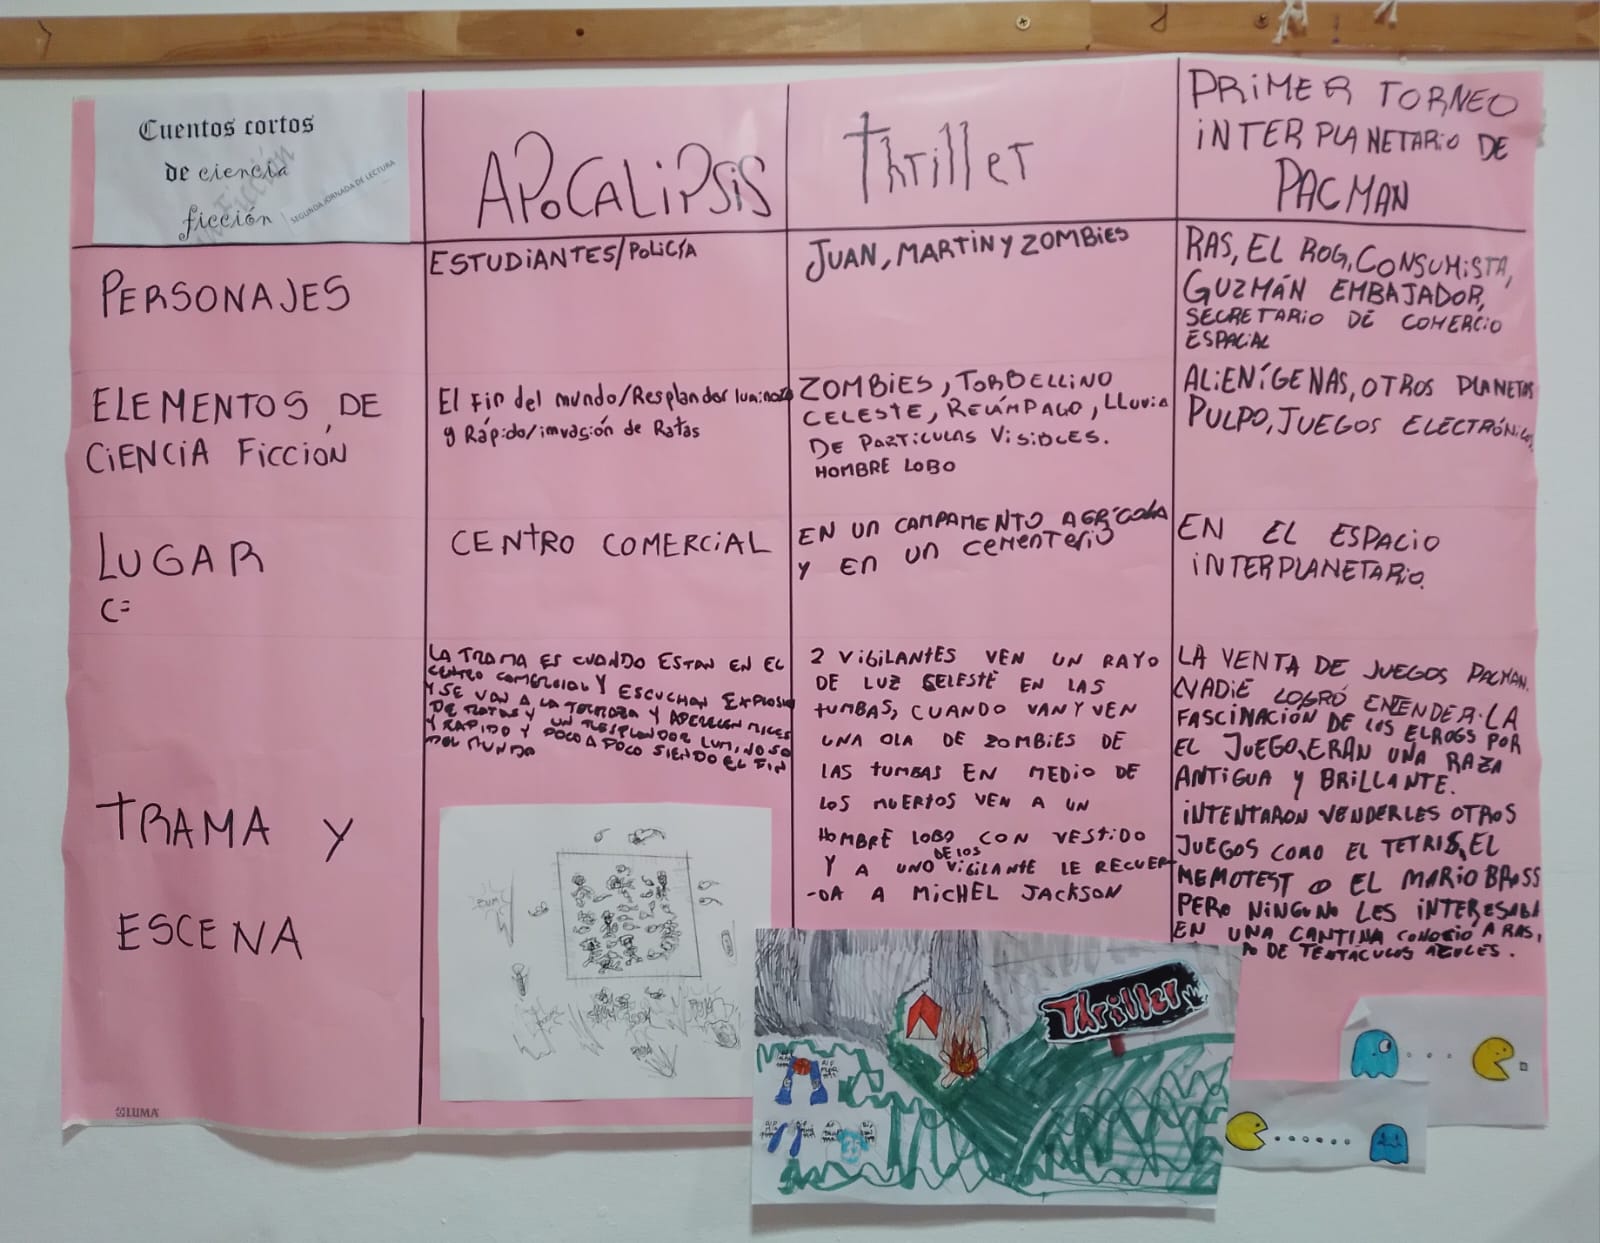 Cuentos cortos
de ciencia
ficción
Ficción
SEGUNDA JORNADA DE LECTURA
APOCALIPSIS
Thriller
PRIMER TORNEO
INTERPLANETARIO DE
PACMAN
PERSONAJES
ESTUDIANTES/POLICÍA
JUAN, MARTIN Y ZOMBIES
RAS, EL ROG, CONSUMISTA,
GUZMÁN EMBAJADOR,
SECRETARIO DE COMERCIO
ESPACIAL
ELEMENTOS DE
CIENCIA FICCION
El Fin del mundo/Resplandor luminoso
y Rápido/invasión de Ratas
ZOMBIES, TORBELLINO
CELESTE, RELÁMPAGO, LLUVIA
DE PARTICULAS VISIBLES.
HOMBRE LOBO
ALIENÍGENAS, OTROS PLANETAS
PULPO, JUEGOS ELECTRÓNICOS
LUGAR
C=
CENTRO COMERCIAL
EN UN CAMPAMENTO AGRÍCOLA
Y EN UN CEMENTERIO
EN EL ESPACIO
INTERPLANETARIO.
TRAMA Y
ESCENA
LA TRAMA ES CUANDO ESTAN EN EL
CENTRO COMERCIAL Y ESCUCHAN EXPLOSION
Y SE VAN A LA TERRAZA Y APARECEN MILES
DE RATAS Y UN RESPLANDOR LUMINOSO
Y RAPIDO Y POCO A POCO SIENDO EL FIN
DEL MUNDO
2 VIGILANTES VEN UN RAYO
DE LUZ CELESTE EN LAS
TUMBAS, CUANDO VAN Y VEN
UNA OLA DE ZOMBIES DE
LAS TUMBAS EN MEDIO DE
LOS MUERTOS VEN A UN
HOMBRE LOBO CON VESTIDO
Y A UNO DE LOS VIGILANTE LE RECUER
-DA A MICHEL JACKSON
LA VENTA DE JUEGOS PACMAN.
NADIE LOGRÓ ENTENDER LA
FASCINACIÓN DE LOS ELROGS POR
EL JUEGO, ERAN UNA RAZA
ANTIGUA Y BRILLANTE.
INTENTARON VENDERLES OTROS
JUEGOS COMO EL TETRIS, EL
MEMOTEST O EL MARIO BROSS
PERO NINGUNO LES INTERESABA
EN UNA CANTINA CONOCIO A RAS,
DE TENTACULOS AZULES.
Thriller
LUMA